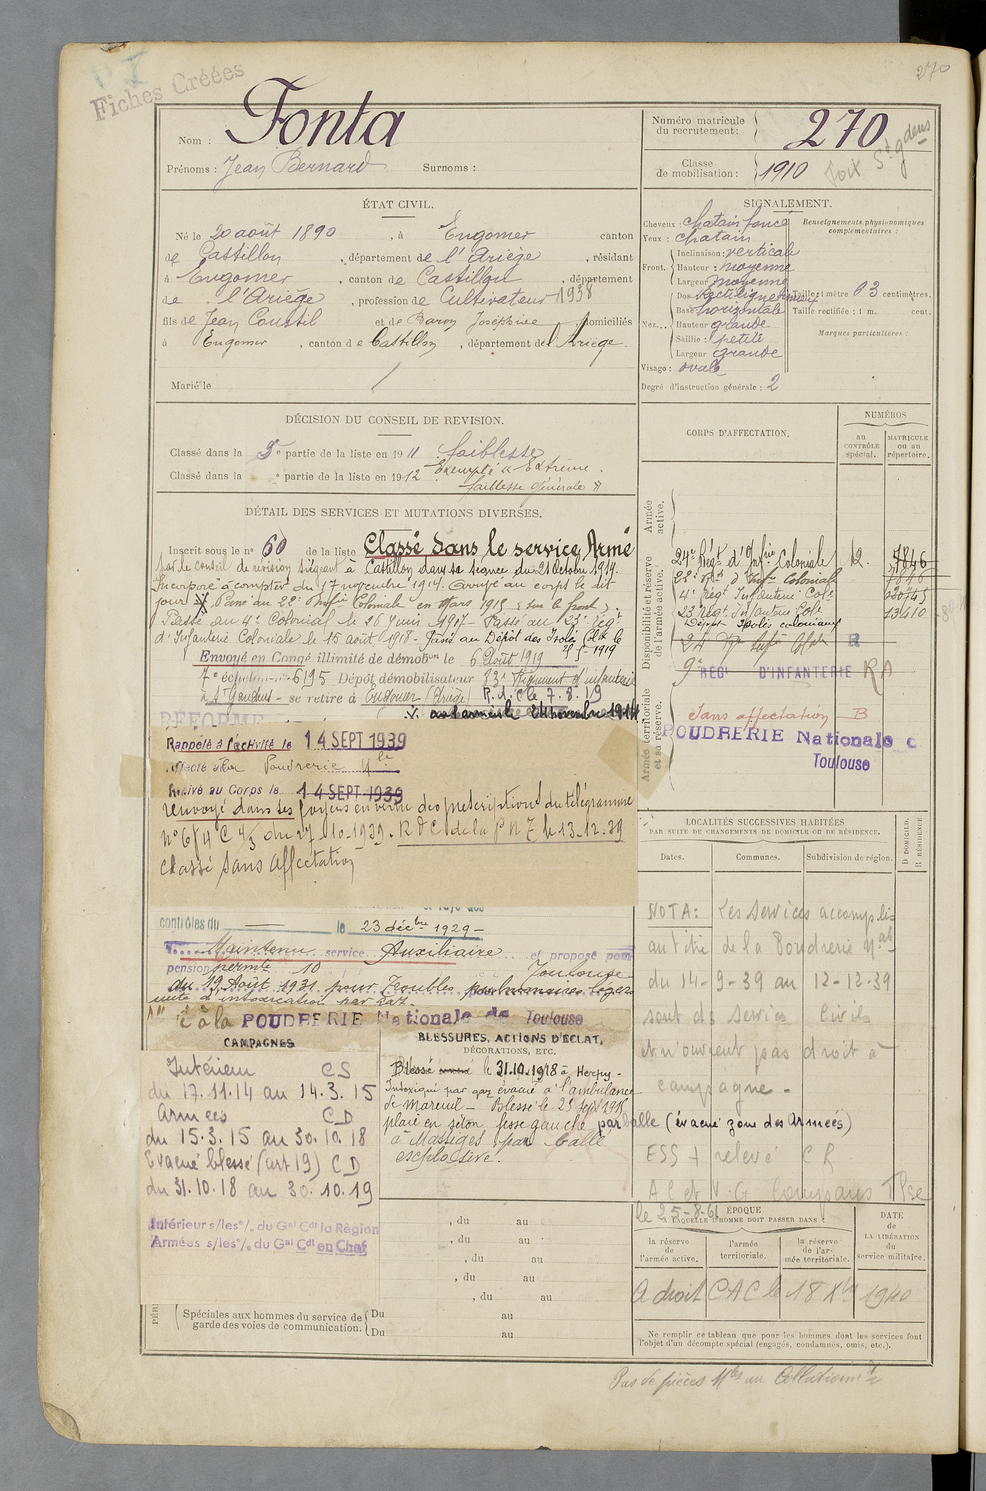 270
Fiches Créées
Nom : Fonta
Prénoms : Jean Bernard Surnoms :
Numéro matricule du recrutement : 270
Classe de mobilisation : 1910
ÉTAT CIVIL.
Né le 20 août 1890, à Engomer canton
de Castillon, département de l'Ariège, résidant
à Engomer, canton de Castillon, département
de l'Ariège, profession de Cultivateur 1938
fils de Jean Coustil et de Baron Joséphine domiciliés
à Engomer, canton de Castillon, département de l'Ariège.
Marié le
SIGNALEMENT.
Cheveux : chatain foncé
Yeux : chatain
Front. Inclinaison : verticale
Hauteur : moyenne
Largeur : moyenne
Nez. Dos : Rectiligne
Base : horizontale
Hauteur : grande
Saillie : petite
Largeur : grande
Visage : ovale
Degré d'instruction générale : 2
Renseignements physionomiques complémentaires :
Taille : 1 mètre 63 centimètres.
Taille rectifiée : 1 m. cent.
Marques particulières :
DÉCISION DU CONSEIL DE REVISION.
Classé dans la 5e partie de la liste en 1911 faiblesse
Classé dans la e partie de la liste en 1912 Exempté "Extrême
faiblesse générale"
DÉTAIL DES SERVICES ET MUTATIONS DIVERSES.
Inscrit sous le n° 60 de la liste Classé dans le service Armé
par le conseil de revision siégeant à Castillon dans sa séance du 21 Octobre 1914.
Incorporé à compter du 17 novembre 1914. Arrivé au corps le dit
jour. Passé au 22e Infie Coloniale en Mars 1915 (sur le front).
Passé au 4e Colonial le 21 Juin 1917 - Passé au 23e Régt
d'Infanterie Coloniale le 15 août 1918 - Passé au Dépôt des Isolés
1919
Envoyé en Congé illimité de démobon le 6 Août 1919
7e échelon n° 6195 Dépôt démobilisateur 83e Régiment d'infanterie
à St Gaudens - se retire à Engomer (Ariège) R.d.C le 7.8.19
24 novembre 1914
RÉFORME
Rappelé à l'activité le 14 SEPT 1939
Affecté à la Poudrerie Nle
Arrivé au Corps le 14 SEPT 1939
renvoyé dans ses foyers en vertu des prescriptions du télégramme
n° 6/4 C 4/3 du 27-10-1939. RDC de la PNT le 13-12-39
Classé sans affectation
contrôles du le 23 décbre 1929 -
Maintenu service Auxiliaire et proposé pour
pension permte 10 Toulouse
du 19 Août 1931 pour Troubles pulmonaires légers
suite d'intoxication par gaz.
à la POUDRERIE Nationale de Toulouse
CORPS D'AFFECTATION.
NUMÉROS
au CONTRÔLE spécial.
MATRICULE ou au répertoire.
Armée active.
Disponibilité et réserve de l'armée active.
Armée territoriale et sa réserve.
24e Régt d'Infie Coloniale 12. 7846
22e Régt d'Infie Coloniale 7846
4e Régt Infanterie Cole 020745
23 Régt Infanterie Cole 13410
Dépôt Isolés coloniaux
24 Rgt Infie Clale R
9e RÉGt D'INFANTERIE RA
Sans affectation B
POUDRERIE Nationale
Toulouse
LOCALITÉS SUCCESSIVES HABITÉES
PAR SUITE DE CHANGEMENTS DE DOMICILE OU DE RÉSIDENCE.
Dates. Communes. Subdivision de région. D DOMICILE. R RÉSIDENCE.
NOTA : Les services accomplis
au titre de la Poudrerie Nale
du 14-9-39 au 12-12-39
sont des services Civils
et n'ouvrent pas droit à
campagne -
ESS + relevé CR
le 25-8-61
CAMPAGNES
Intérieur CS
du 17.11.14 au 14.3.15
Armées CD
du 15.3.15 au 30.10.18
Evacué blessé (art 19) CD
du 31.10.18 au 30.10.19
Intérieur s/les °/. du Gal Cdt la Région
Armées s/les °/. du Gal Cdt en Chef
BLESSURES, ACTIONS D'ÉCLAT,
DÉCORATIONS, ETC.
Blessé le 31.10.1918 à Herpy -
Intoxiqué par gaz évacué à l'ambulance
de Mareuil - Blessé le 25 Sept 1915
plaie en séton fesse gauche par balle (évacué zone des Armées)
à Massiges par balle
explosive.
, du au
, du au
, du au
, du au
, du au
Spéciales aux hommes du service de garde des voies de communication. Du au
Du au
ÉPOQUE
À LAQUELLE L'HOMME DOIT PASSER DANS :
la réserve de l'armée active.
l'armée territoriale.
la réserve de l'armée territoriale.
DATE de LA LIBÉRATION du service militaire.
A droit CAC le 18 Xbre 1940
Ne remplir ce tableau que pour les hommes dont les services font l'objet d'un décompte spécial (engagés, condamnés, omis, etc.).
Pas de pièces Mles au